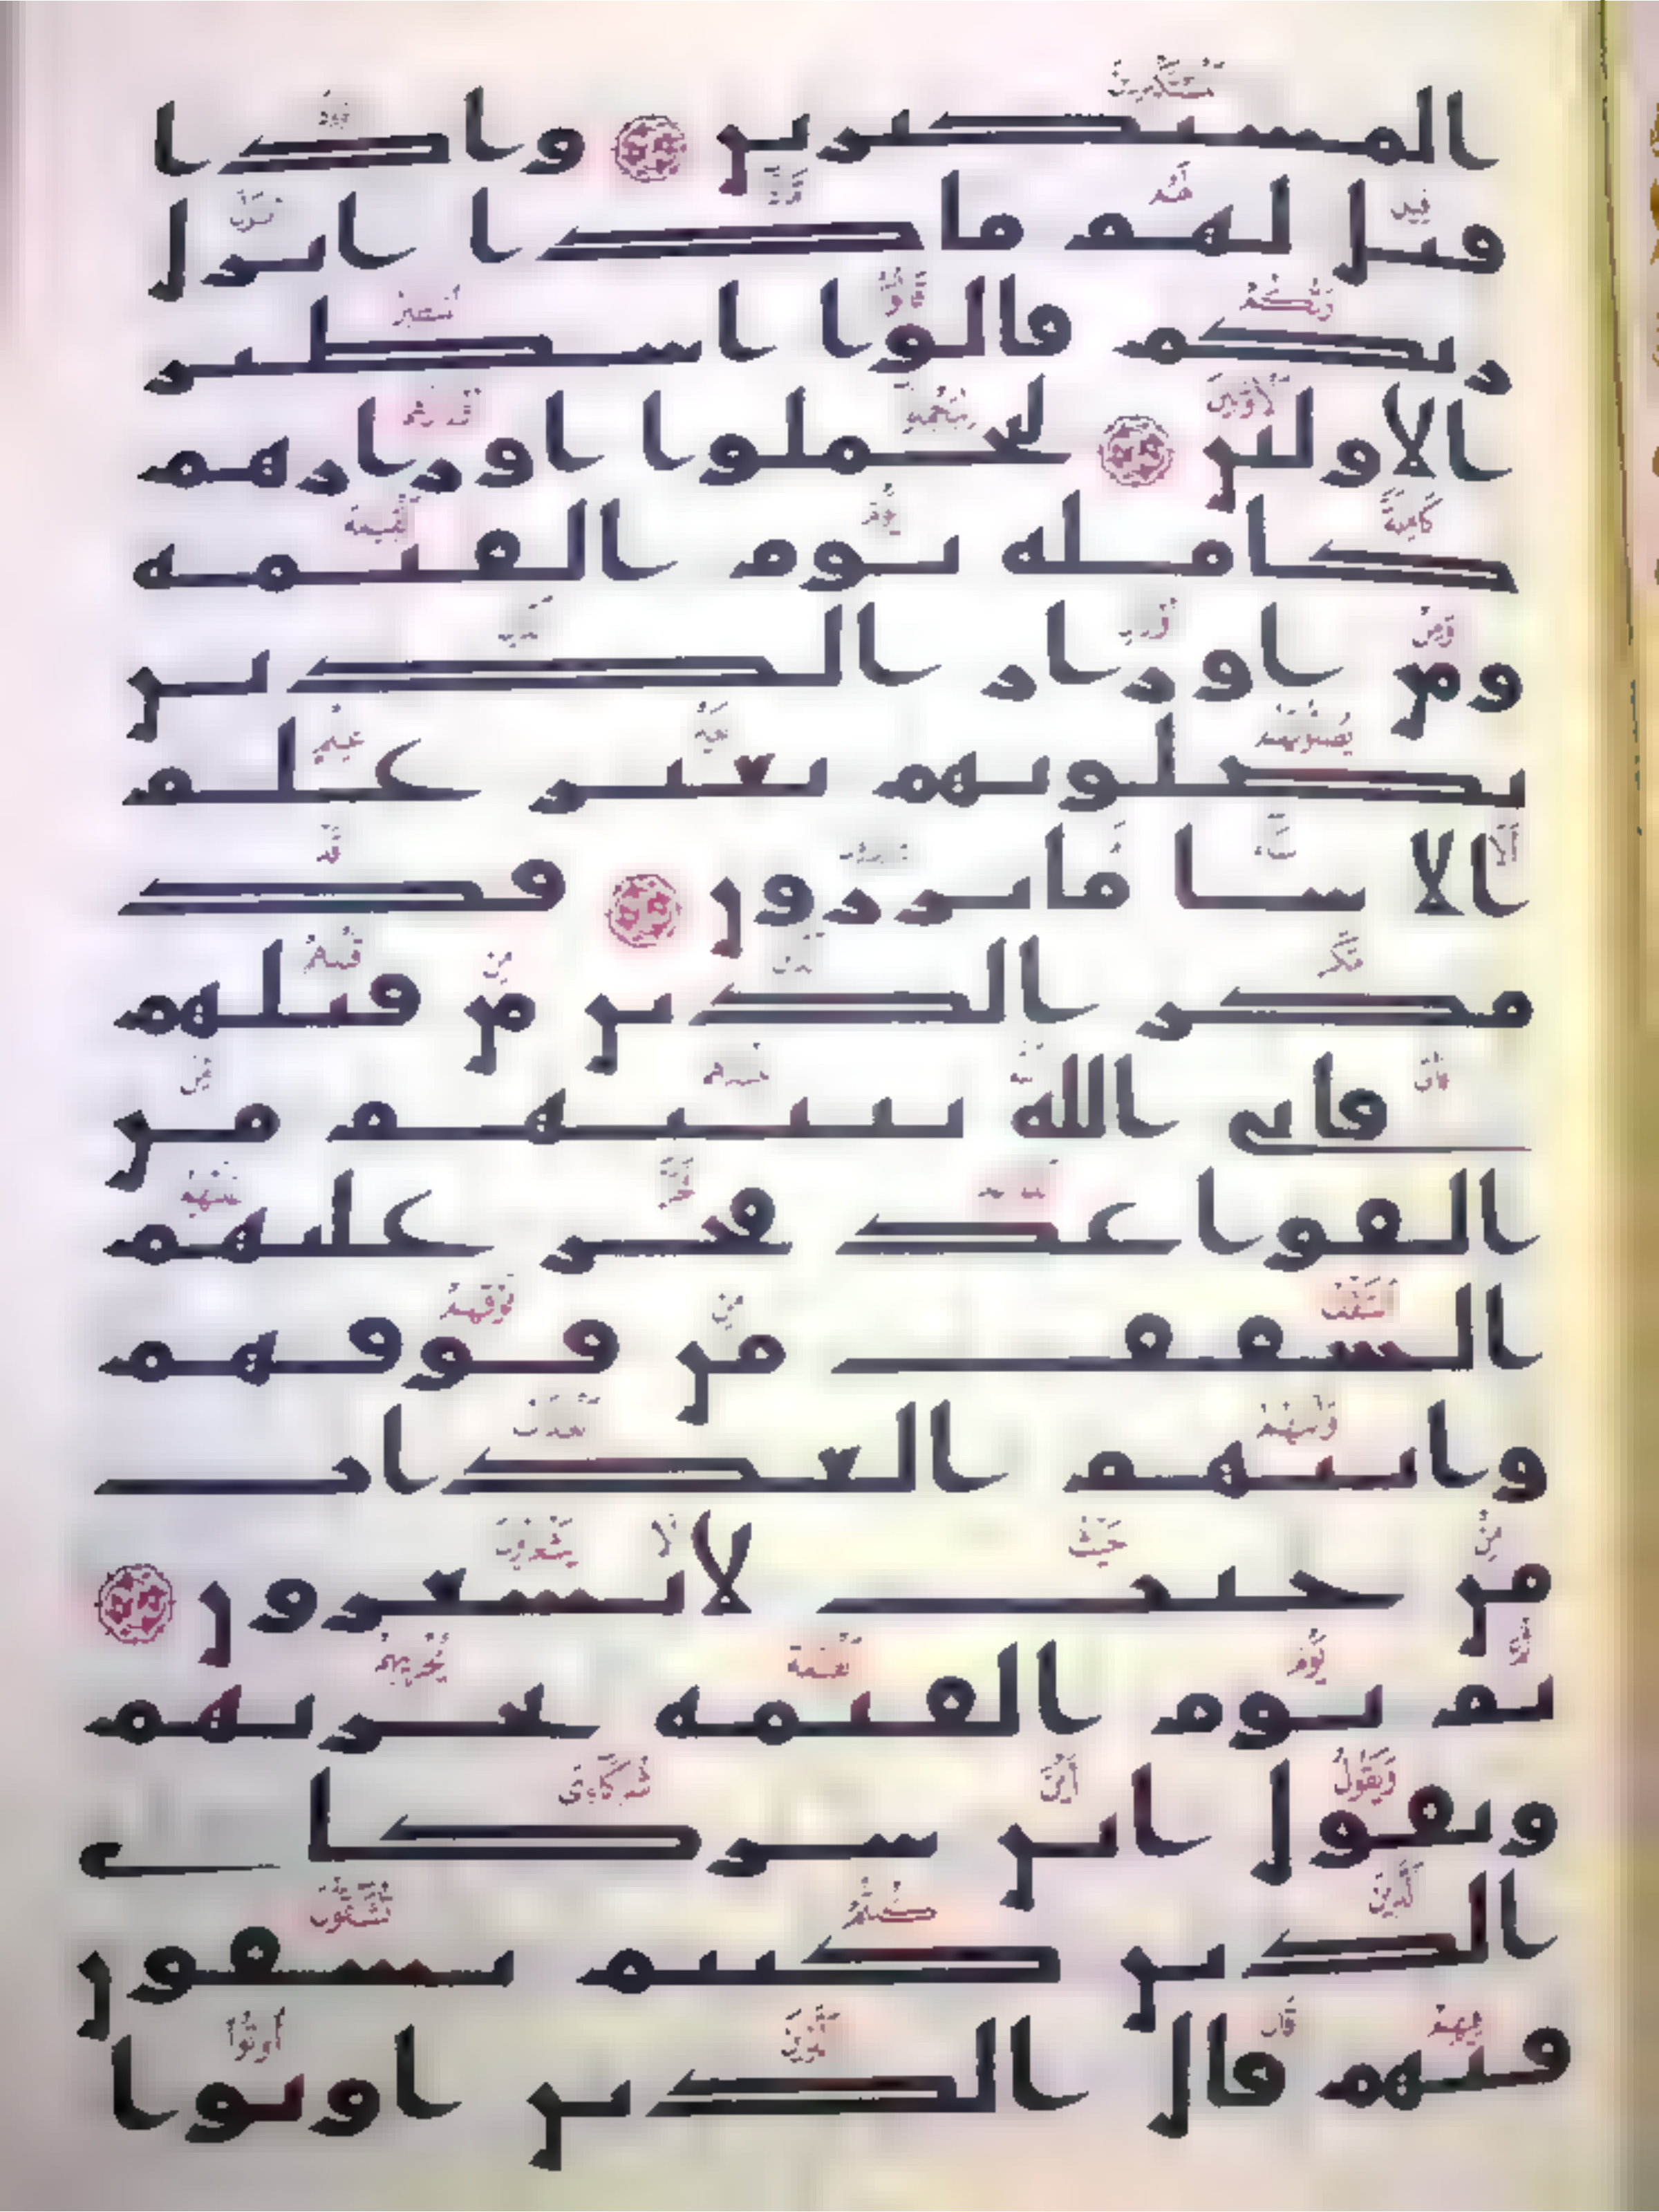 المستكبرين واذا
قيل لهم ماذا انزل
ربكم قالوا اسطير
الاولين ليحملوا اوزارهم
كاملة يوم القيمة
ومن اوزار الذين
يضلونهم بغير علم
الا سا مايزرون قد
مكر الذين من قبلهم
فاتى الله بنينهم من
القواعد فخر عليهم
السقف من فوقهم
واتيهم العذاب
من حيث لايشعرون
ثم يوم القيمة يخزيهم
ويقول اين شركاى
الذين كنتم تشقون
فيهم قال الذين اوتوا